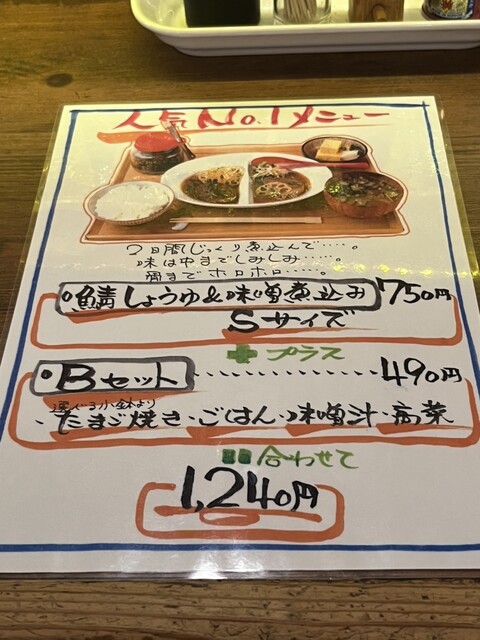 人気No.1メニュー
2日間じっくり煮込んで‥‥。
味は中までしみしみ‥‥。
骨までホロホロ‥‥。
鯖しょうゆ&味噌煮込み 750円
Sサイズ
プラス
Bセット‥‥‥‥‥490円
選べる小鉢より
・たまご焼き・ごはん・味噌汁・高菜
合わせて
1,240円